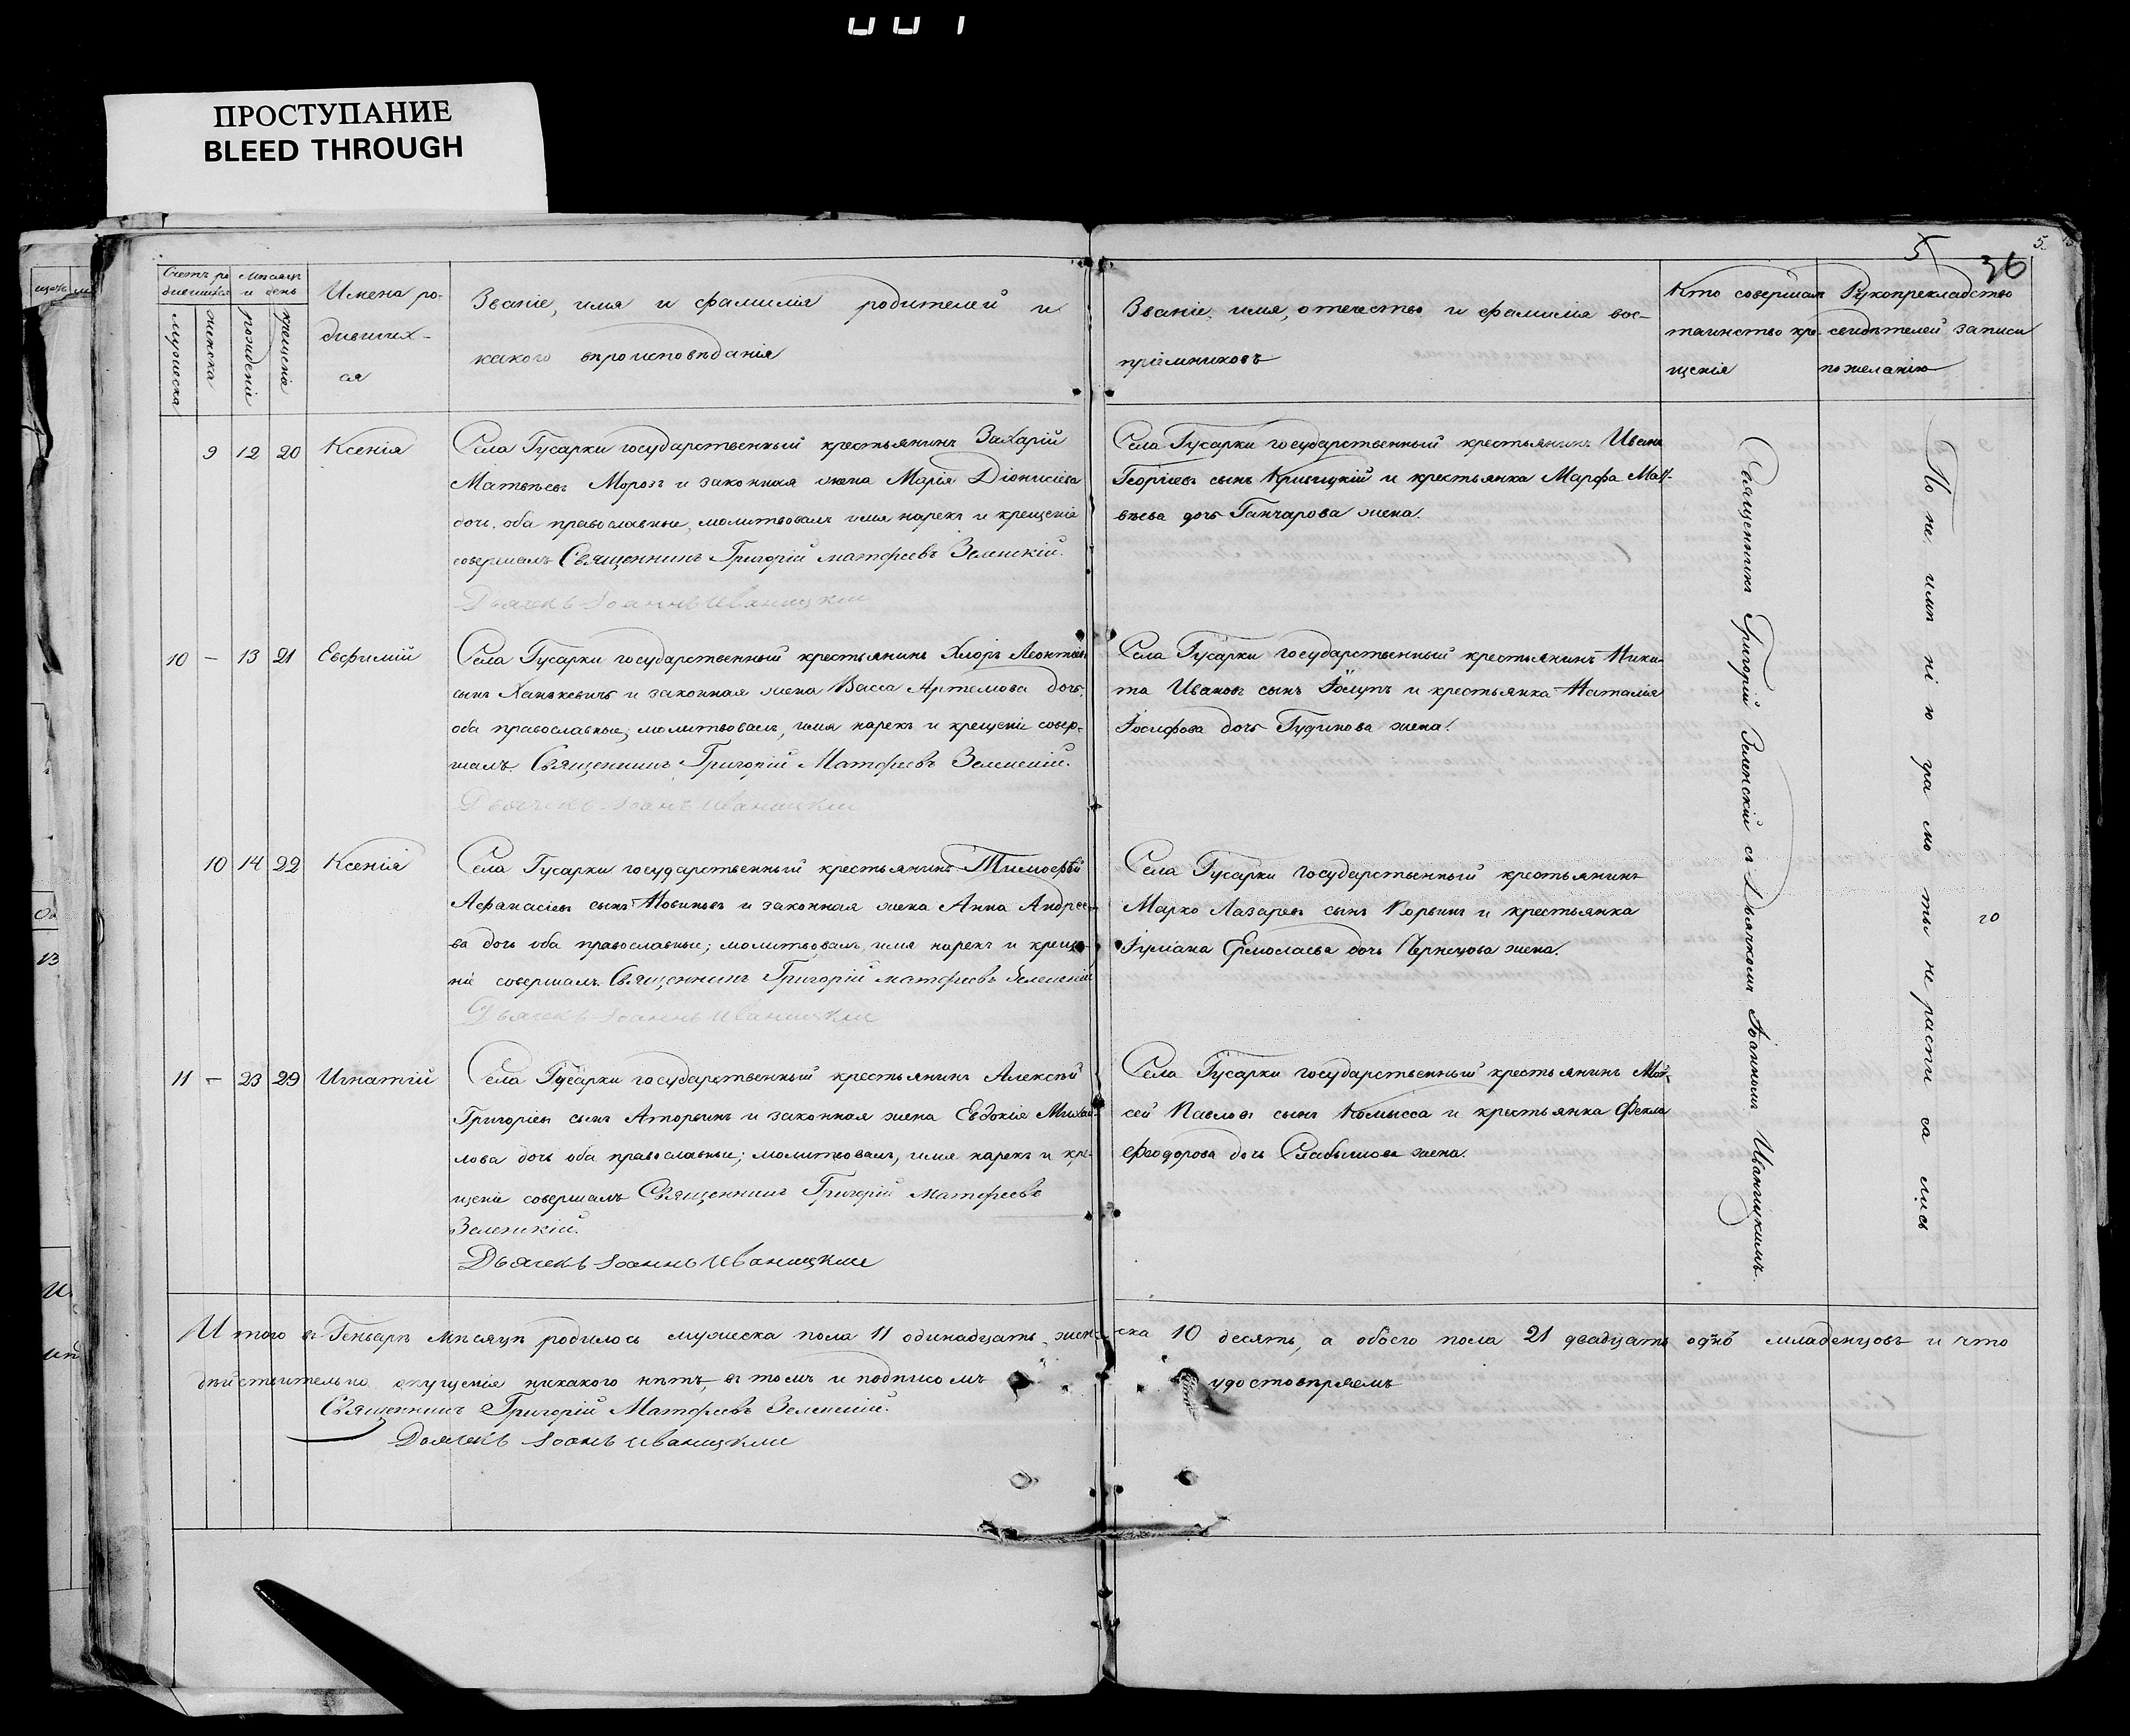 ПРОСТУПАНИЕ
BLEED THROUGH
5
36
5.
Счетъ ро
дившихся
мѣсяцъ
и день
мужеска
женска
рожденія
крещенія
Имена ро-
дивших-
ся
Званіе, имя и фамилія родителей и
какого вѣроисповѣданія
Званіе, имя, отчество и фамилія вос-
пріемниковъ
Кто совершалъ
таинство кре-
щенія
Рукоприкладство
свидѣтелей записи
по желанію
9 12 20 Ксенія
Села Гусарки государственный крестьянинъ Захарій
Матвѣевъ Морозъ и законная жена Марія Діонисіева
дочь, оба православные, молитвовалъ имя нарекъ и крещеніе
совершалъ Священникъ Григорій Матфеевъ Зеленскій.
Дьячекъ Іоаннъ Иваницкій
Села Гусарки государственный крестьянинъ Иванъ
Георгіевъ сынъ Кривицкій и крестьянка Марфа Мат-
вѣева дочь Ганчарова жена.
10 – 13 21 Евфимій
Села Гусарки государственный крестьянинъ Хлоръ Леонтіевъ
сынъ Ханькевичъ и законная жена Васса Артемова дочь,
оба православные, молитвовалъ, имя нарекъ и крещеніе совер-
шалъ. Священникъ Григорій Матфеевъ Зеленскій.
Дьячекъ Іоанъ Иваницкій
Села Гусарки государственный крестьянинъ Ники-
та Ивановъ сынъ Голупъ и крестьянка Наталія
Іосифова дочь Гудинова жена.
10 14 22 Ксенія
Села Гусарки государственный крестьянинъ Тимофѣй
Афанасіевъ сынъ Новиковъ и законная жена Анна Андрее-
ва дочь оба православные; молитвовалъ, имя нарекъ и креще-
ніе совершалъ. Священникъ Григорій Матфеевъ Зеленскій
Дьячекъ Іоаннъ Иваницкій
Села Гусарки государственный крестьянинъ
Марко Лазаревъ сынъ Корвинъ и крестьянка
Ермолаева дочь Чернецова жена.
11 – 23 29 Игнатій
Села Гусарки государственный крестьянинъ Алексѣй
Григоріевъ сынъ Аторвинъ и законная жена Евдокія Михай-
лова дочь оба православные; молитвовалъ, имя нарекъ и кре-
щеніе совершалъ Священникъ Григорій Матфеевъ
Зеленскій.
Дьячекъ Іоаннъ Иваницкій
Села Гусарки государственный крестьянинъ Мой-
сей Павловъ сынъ Комысса и крестьянка Фекла
Феодорова дочь жена.
Священникъ Григорій Зеленскій съ Дьячкомъ Іоанномъ Иваницкимъ.
По не имѣ нію гра мо ты не распи са лись
20
Итого въ Генварѣ мѣсяцѣ родилось мужеска пола 11 одинадцать, жен-ска 10 десять, а обоего пола 21 двадцать однъ младенцовъ и что
дѣйствительно опущенія никакого нѣтъ, въ томъ и подписомъ удостовѣряемъ
Священникъ Григорій Матфеевъ Зеленскій.
Дьячекъ Іоанъ Иваницкій